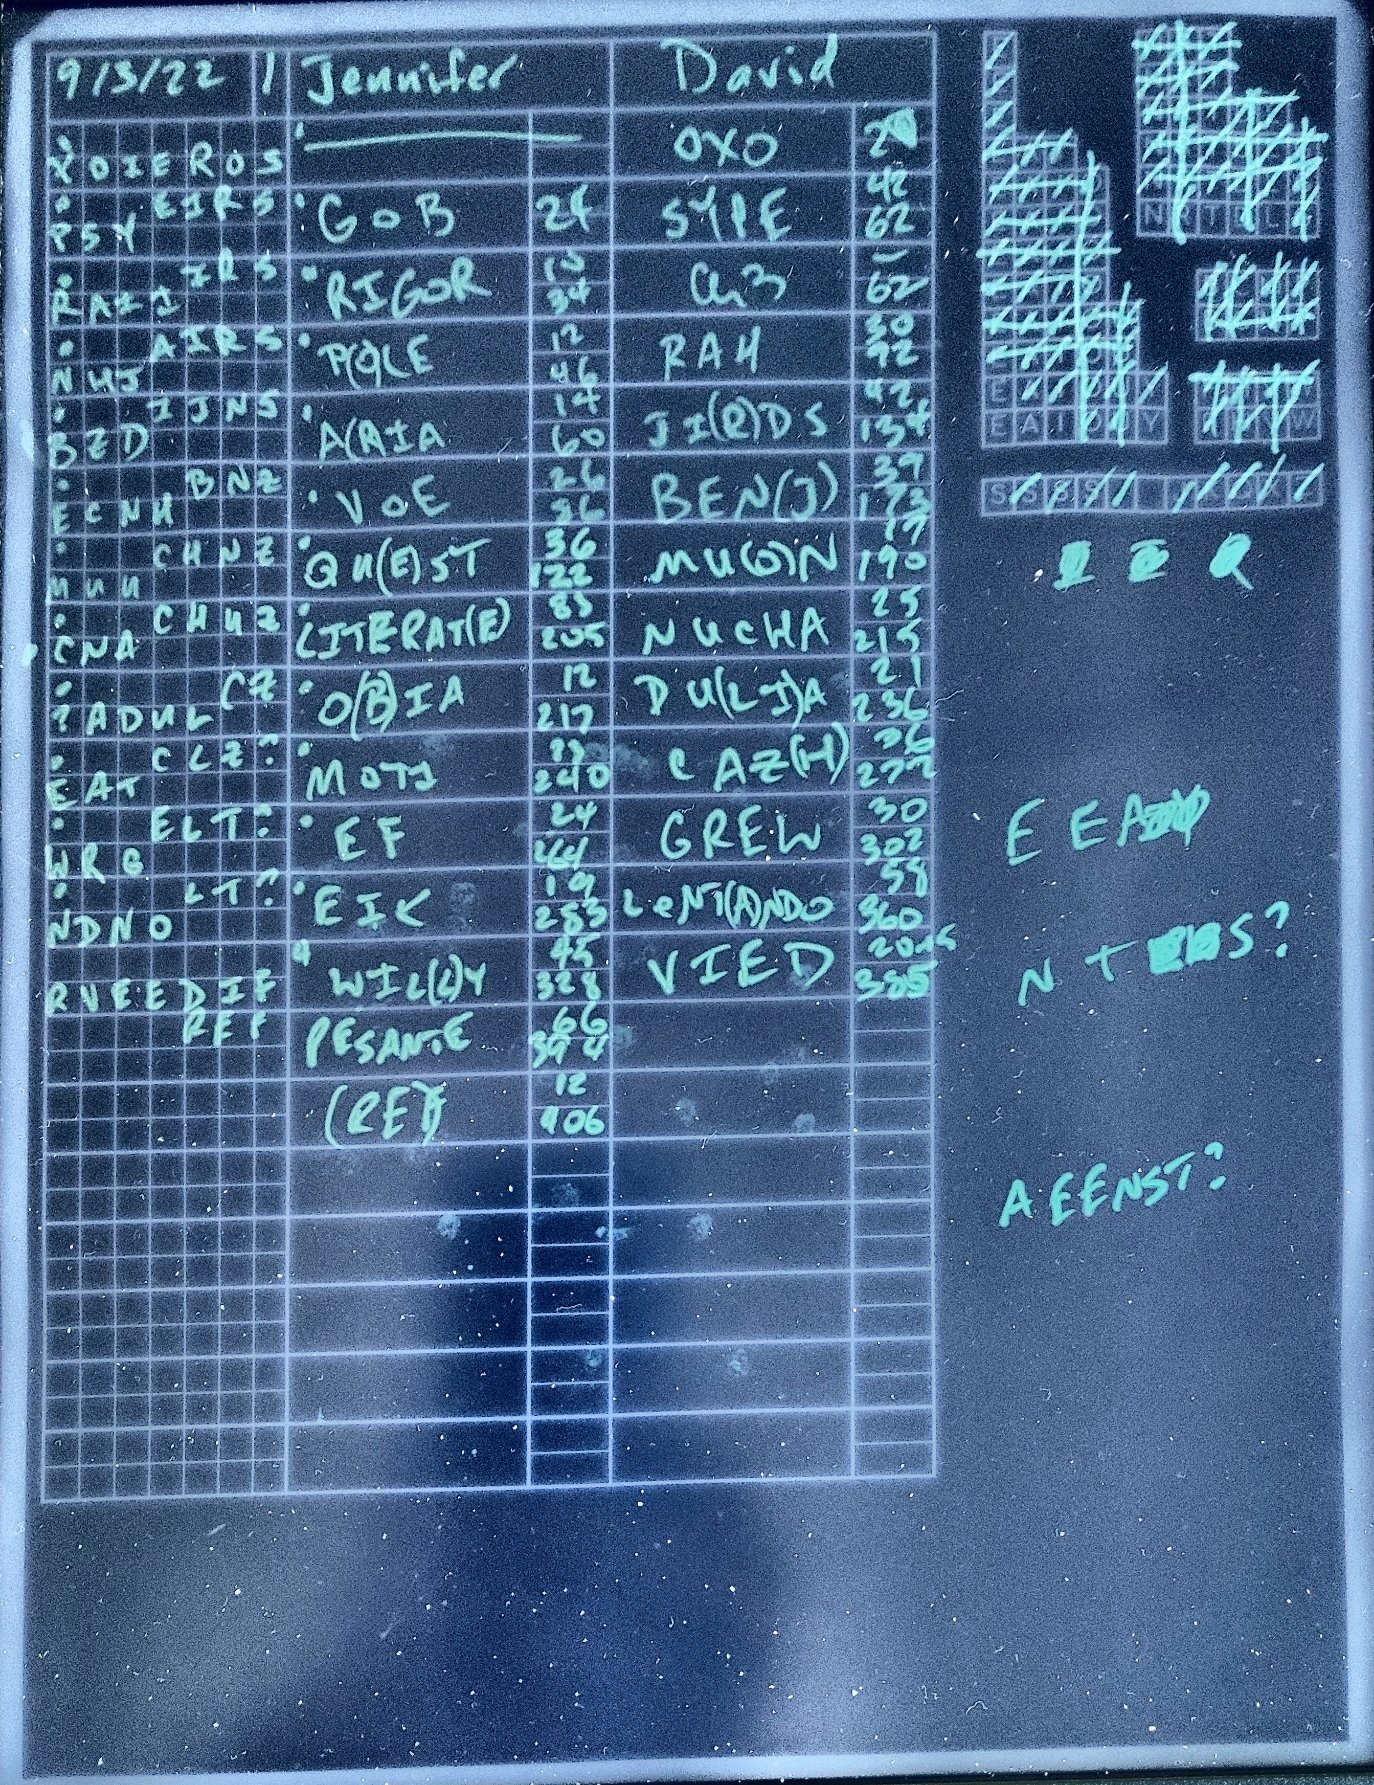 9/3/22 1 Jennifer David
XOIEROS OXO
EIRS 42
PSY GOB 24 SYPE 62
IRS 10 -
RAII RIGOR 34 Ch3 62
AIRS 12 30
NUJ P(O)LE 46 RAH 92
IJNS 14 42
BZD A(R)IA 60 JI(R)DS 134
BNZ 26 39
ECNH VOE 86 BEN(J) 173
CHNZ 36 17
UUU QU(E)ST 122 MU(O)N 190
CHUZ 83 25
CNA LITERAT(E) 205 NUCHA 215
CZ 12 21
?ADUL O(B)IA 217 DU(LI)A 236
CLZ? 23 36
EAT MOTI 240 CAZ(H) 272
ELT? 24 30
WRG EF 264 GREW 302
LT? 19 58
NDNO EIK 283 LENT(A)NDO 360
45
RVEEDIF WIL(L)Y 328 VIED 385
REF 66
PESANTE 394
12
(REF) 406
E E A
N T S?
AEENST?